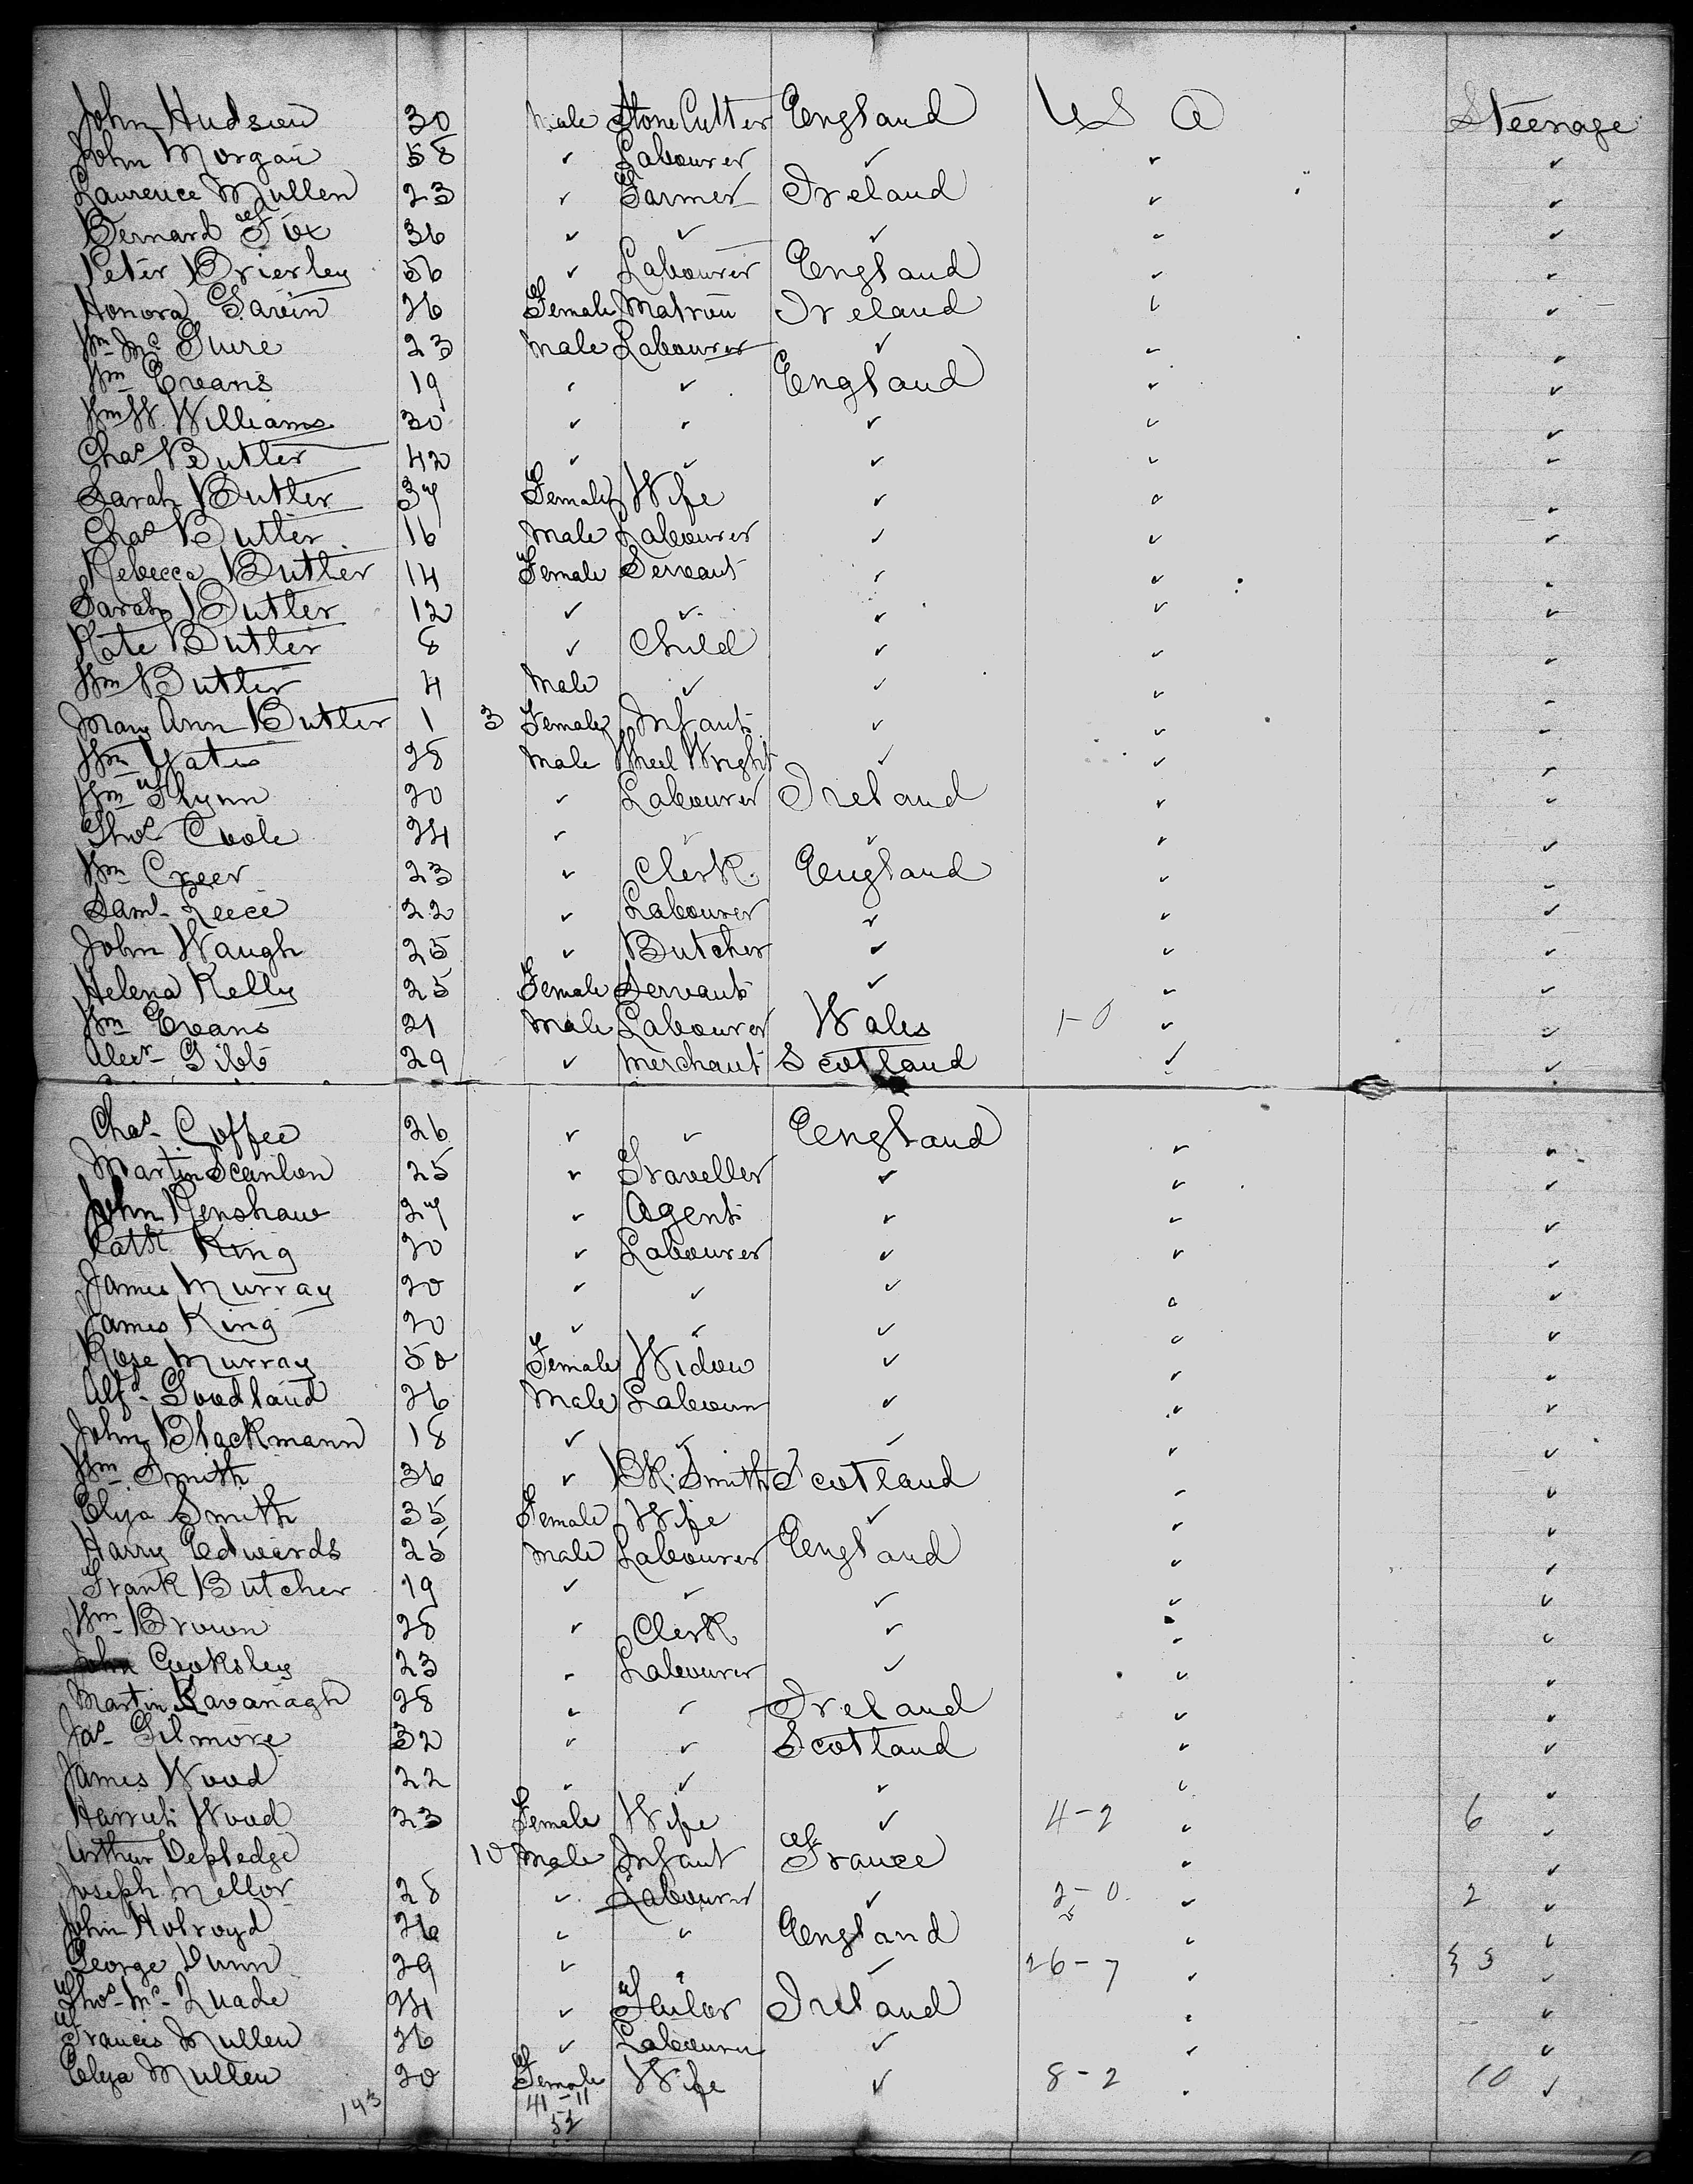 John Hudson 30 Male Stone Cutter England U S A Steerage
John Morgan 58 ✓ Labourer ✓ ✓ ✓
Laurence Mullen 23 ✓ Farmer Ireland ✓ ✓
Bernard Fox 36 ✓ ✓ ✓ ✓ ✓
Peter Brierley 56 ✓ Labourer England ✓ ✓
Honora Gavin 26 Female Matron Ireland ✓ ✓
Wm Mc Guire 23 Male Labourer ✓ ✓ ✓
Wm Evans 19 ✓ ✓ England ✓ ✓
Wm W. Williams 30 ✓ ✓ ✓ ✓ ✓
Chas Butler 42 ✓ ✓ ✓ ✓ ✓
Sarah Butler 37 Female Wife ✓ ✓ ✓
Chas Butler 16 Male Labourer ✓ ✓ ✓
Rebecca Butler 14 Female Servant ✓ ✓ ✓
Sarah Butler 12 ✓ ✓ ✓ ✓ ✓
Kate Butler 8 ✓ Child ✓ ✓ ✓
Wm Butler 4 Male ✓ ✓ ✓ ✓
Mary Ann Butler 1 3 Female Infant ✓ ✓ ✓
Wm Yates 28 Male Wheel Wright ✓ ✓ ✓
Wm Flynn 20 ✓ Labourer Ireland ✓ ✓
Thos Coole 24 ✓ ✓ ✓ ✓ ✓
Wm Creer 23 ✓ Clerk England ✓ ✓
Saml Leece 22 ✓ Labourer ✓ ✓ ✓
John Waugh 25 ✓ Butcher ✓ ✓ ✓
Helena Kelly 25 Female Servant ✓ ✓ ✓
Wm Evans 21 Male Labourer Wales 1-0 ✓ ✓
Alexr Gibb 29 ✓ Merchant Scotland ✓ ✓
Chas Coffee 26 ✓ ✓ England ✓ ✓
Martin Scanlon 25 ✓ Traveller ✓ ✓ ✓
John Renshaw 27 ✓ Agent ✓ ✓ ✓
Patk King 20 ✓ Labourer ✓ ✓ ✓
James Murray 20 ✓ ✓ ✓ ✓ ✓
James King 20 ✓ ✓ ✓ ✓ ✓
Rose Murray 50 Female Widow ✓ ✓ ✓
Alfd Goodland 26 Male Labourer ✓ ✓ ✓
John Blackmann 18 ✓ ✓ ✓ ✓ ✓
Wm Smith 36 ✓ Bk. Smith Scotland ✓ ✓
Eliza Smith 35 Female Wife ✓ ✓ ✓
Harry Edwards 25 Male Labourer England ✓ ✓
Frank Butcher 19 ✓ ✓ ✓ ✓ ✓
Wm Brown 28 ✓ Clerk ✓ ✓ ✓
John Cooksley 23 ✓ Labourer ✓ ✓ ✓
Martin Kavanagh 28 ✓ ✓ Ireland ✓ ✓
Jas Gilmore 32 ✓ ✓ Scotland ✓ ✓
James Wood 22 ✓ ✓ ✓ ✓ ✓
Harriet Wood 23 Female Wife ✓ 4-2 ✓ 6 ✓
Arthur Depledge 10 Male Infant France ✓ ✓
Joseph Mellor 28 ✓ Labourer ✓ 2-0 ✓ 2 ✓
John Holroyd 26 ✓ ✓ England ✓ ✓
George Dunn 29 ✓ ✓ ✓ 26-7 ✓ 33 ✓
Thos Mc Quade 24 ✓ Tailor Ireland ✓ ✓
Francis Mullen 26 ✓ Labourer ✓ ✓ ✓
Eliza Mullen 20 Female Wife ✓ 8-2 ✓ 10 ✓
143 41-11
52